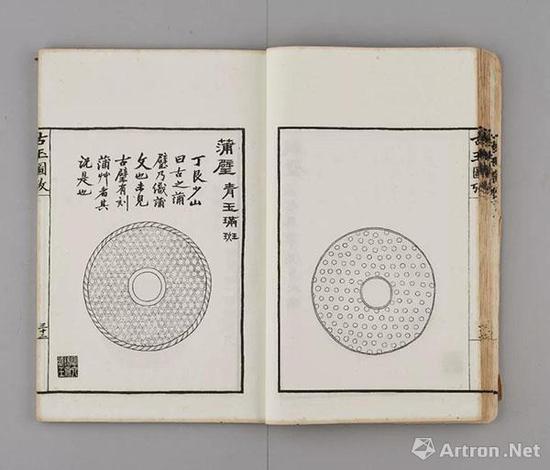 古玉圖攷
蒲璧 青玉璊斑
丁艮少山
曰古之蒲
璧乃織蒲
文也未見
古璧有刻
蒲艸者其
說是也
古玉圖攷
Artron.Net